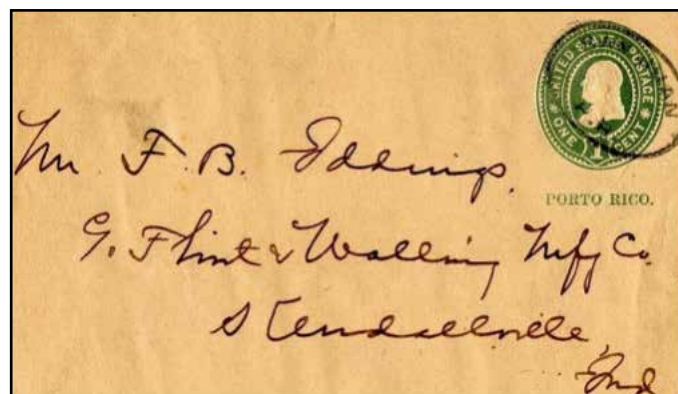 UNITED STATES POSTAGE
ONE 1 CENT
PORTO RICO.
Mr F. B. Iddings.
G. Flint & Walling Mfg Co.
Kendallville,
Ind